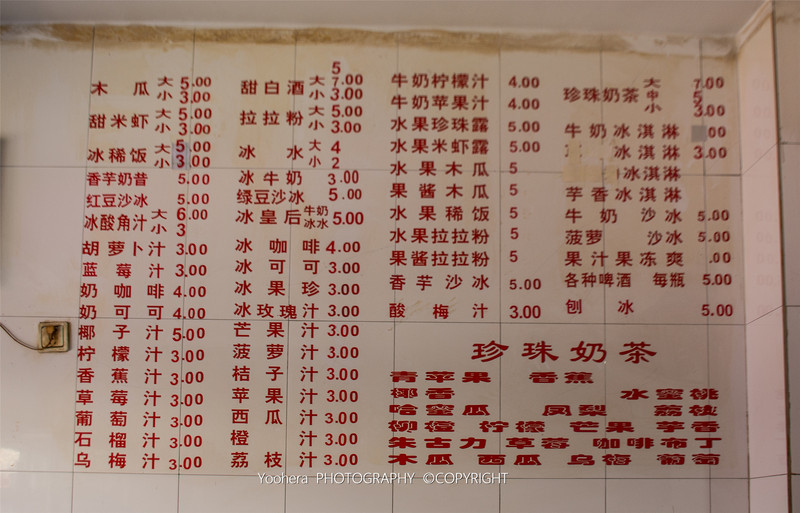 木瓜 大 5.00
小 3.00
甜米虾 大 5.00
小 3.00
冰稀饭 大 5.00
小 3.00
香芋奶昔 5.00
红豆沙冰 5.00
冰酸角汁 大 6.00
小 3
胡萝卜汁 3.00
蓝莓汁 3.00
奶咖啡 4.00
奶可可 4.00
椰子汁 5.00
柠檬汁 3.00
香蕉汁 3.00
草莓汁 3.00
葡萄汁 3.00
石榴汁 3.00
乌梅汁 3.00
5
甜白酒 大 7.00
小 3.00
拉拉粉 大 5.00
小 3.00
冰水 大 4
小 2
冰牛奶 3.00
绿豆沙冰 5.00
冰皇后 牛奶 冰水 5.00
冰咖啡 4.00
冰可可 3.00
冰果珍 3.00
冰玫瑰汁 3.00
芒果汁 3.00
菠萝汁 3.00
桔子汁 3.00
苹果汁 3.00
西瓜汁 3.00
橙汁 3.00
荔枝汁 3.00
牛奶柠檬汁 4.00
牛奶苹果汁 4.00
水果珍珠露 5.00
水果米虾露 5.00
水果木瓜 5
果酱木瓜 5
水果稀饭 5
水果拉拉粉 5
果酱拉拉粉 5
香芋沙冰 5.00
酸梅汁 3.00
珍珠奶茶 大 7.00
中 5
小 3.00
牛奶冰淇淋 .00
冰淇淋 3.00
冰淇淋
芋香冰淇淋
牛奶沙冰 5.00
菠萝沙冰 5.00
果汁果冻爽 5.00
各种啤酒 每瓶 5.00
刨冰 5.00
珍珠奶茶
青苹果 香蕉
椰香 水蜜桃
哈蜜瓜 凤梨 荔枝
柳橙 柠檬 芒果 芋香
朱古力 草莓 咖啡布丁
木瓜 西瓜 乌梅 葡萄
Yoohera PHOTOGRAPHY ©COPYRIGHT